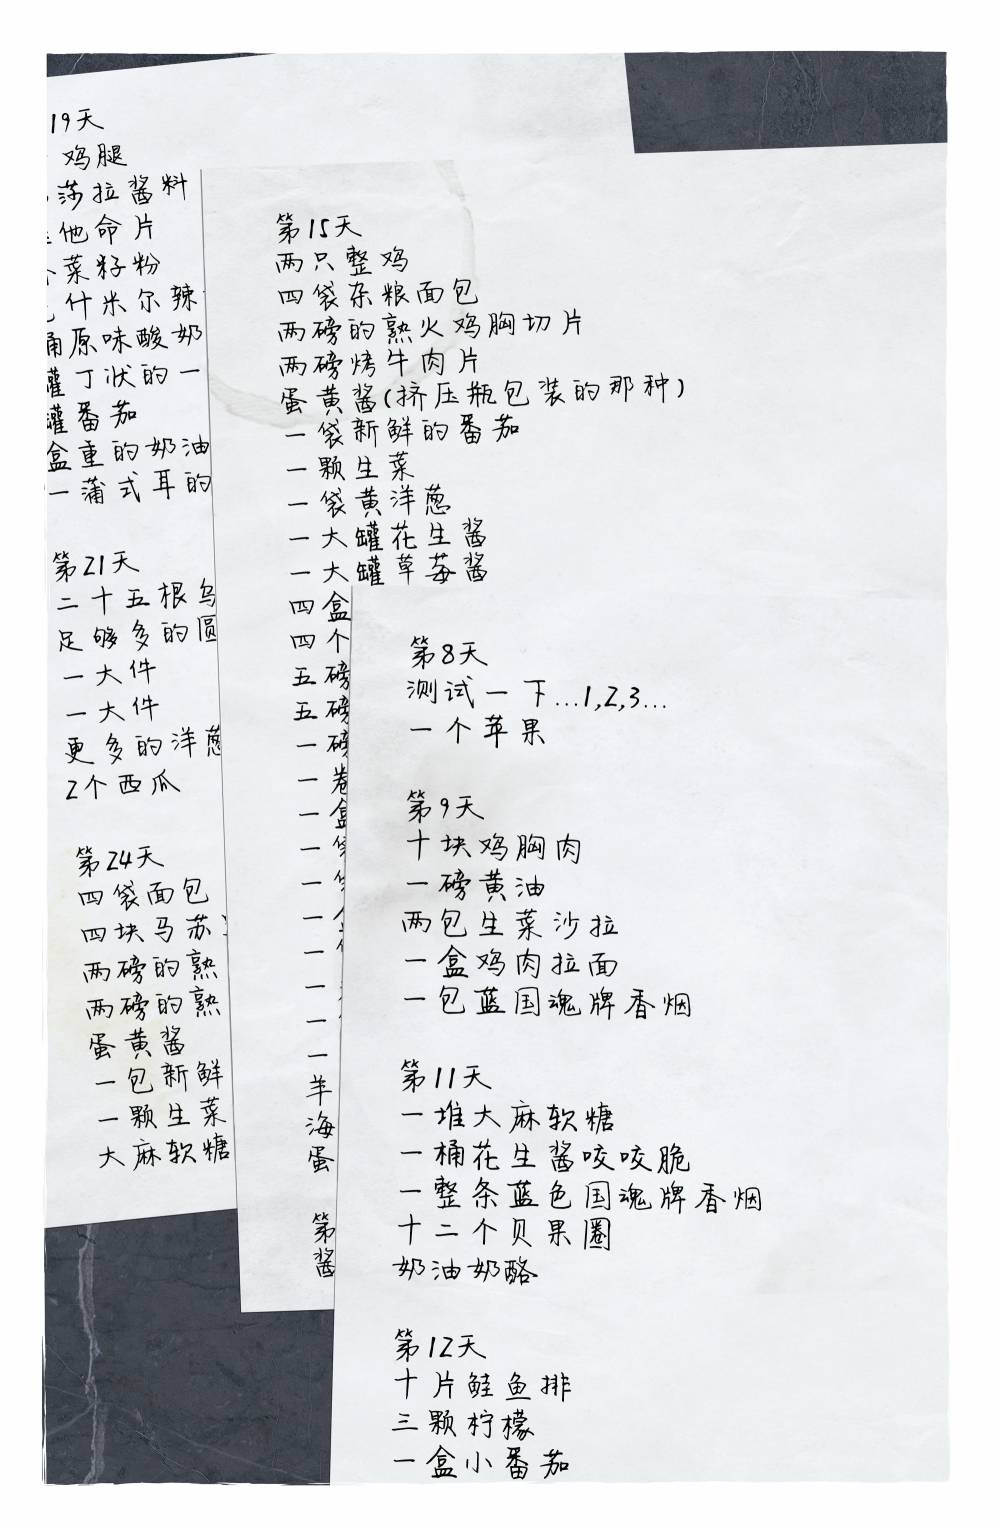 19天
鸡腿
莎拉酱料
他命片
菜籽粉
什米尔辣
桶原味酸奶
罐丁状的一
罐番茄
盒重的奶油
一蒲式耳的
第21天
二十五根乌
足够多的圆
一大件
一大件
更多的洋葱
2个西瓜
第24天
四袋面包
四块马苏
两磅的熟
两磅的熟
蛋黄酱
一包新鲜
一颗生菜
大麻软糖
第15天
两只整鸡
四袋杂粮面包
两磅的熟火鸡胸切片
两磅烤牛肉片
蛋黄酱(挤压瓶包装的那种)
一袋新鲜的番茄
一颗生菜
一袋黄洋葱
一大罐花生酱
一大罐草莓酱
四盒
四个
五磅
五磅
一磅
一卷
一盒
一袋
一
一
一
一
一
一
羊
海
蛋
第
酱
第8天
测试一下...1,2,3...
一个苹果
第9天
十块鸡胸肉
一磅黄油
两包生菜沙拉
一盒鸡肉拉面
一包蓝国魂牌香烟
第11天
一堆大麻软糖
一桶花生酱咬咬脆
一整条蓝色国魂牌香烟
十二个贝果圈
奶油奶酪
第12天
十片鲑鱼排
三颗柠檬
一盒小番茄